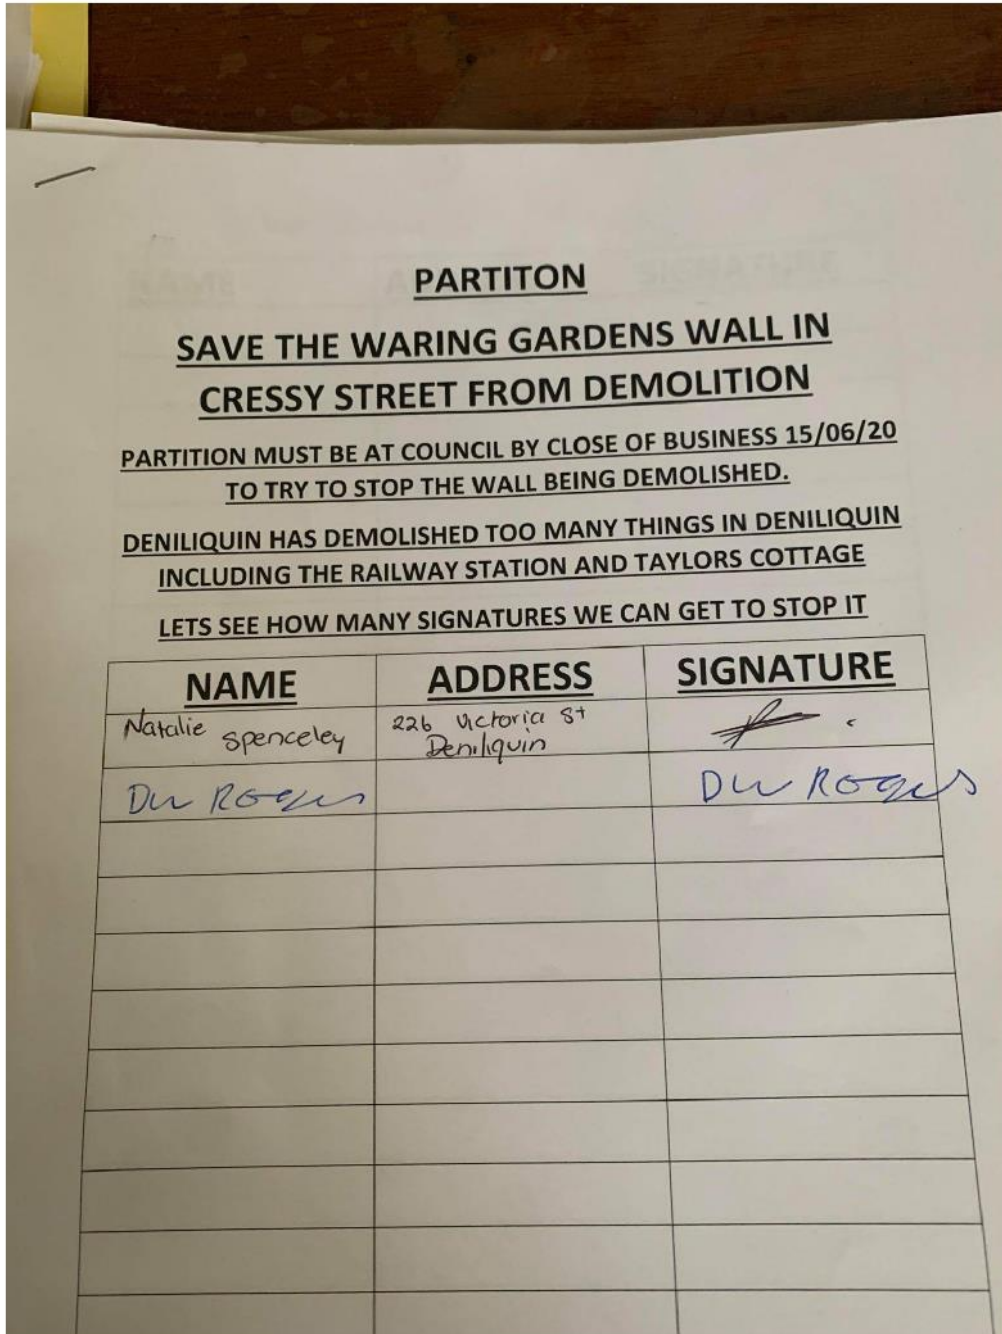 PARTITON
SAVE THE WARING GARDENS WALL IN
CRESSY STREET FROM DEMOLITION
PARTITION MUST BE AT COUNCIL BY CLOSE OF BUSINESS 15/06/20
TO TRY TO STOP THE WALL BEING DEMOLISHED.
DENILIQUIN HAS DEMOLISHED TOO MANY THINGS IN DENILIQUIN
INCLUDING THE RAILWAY STATION AND TAYLORS COTTAGE
LETS SEE HOW MANY SIGNATURES WE CAN GET TO STOP IT
NAME ADDRESS SIGNATURE
Natalie Spenceley 226 Victoria St
Deniliquin